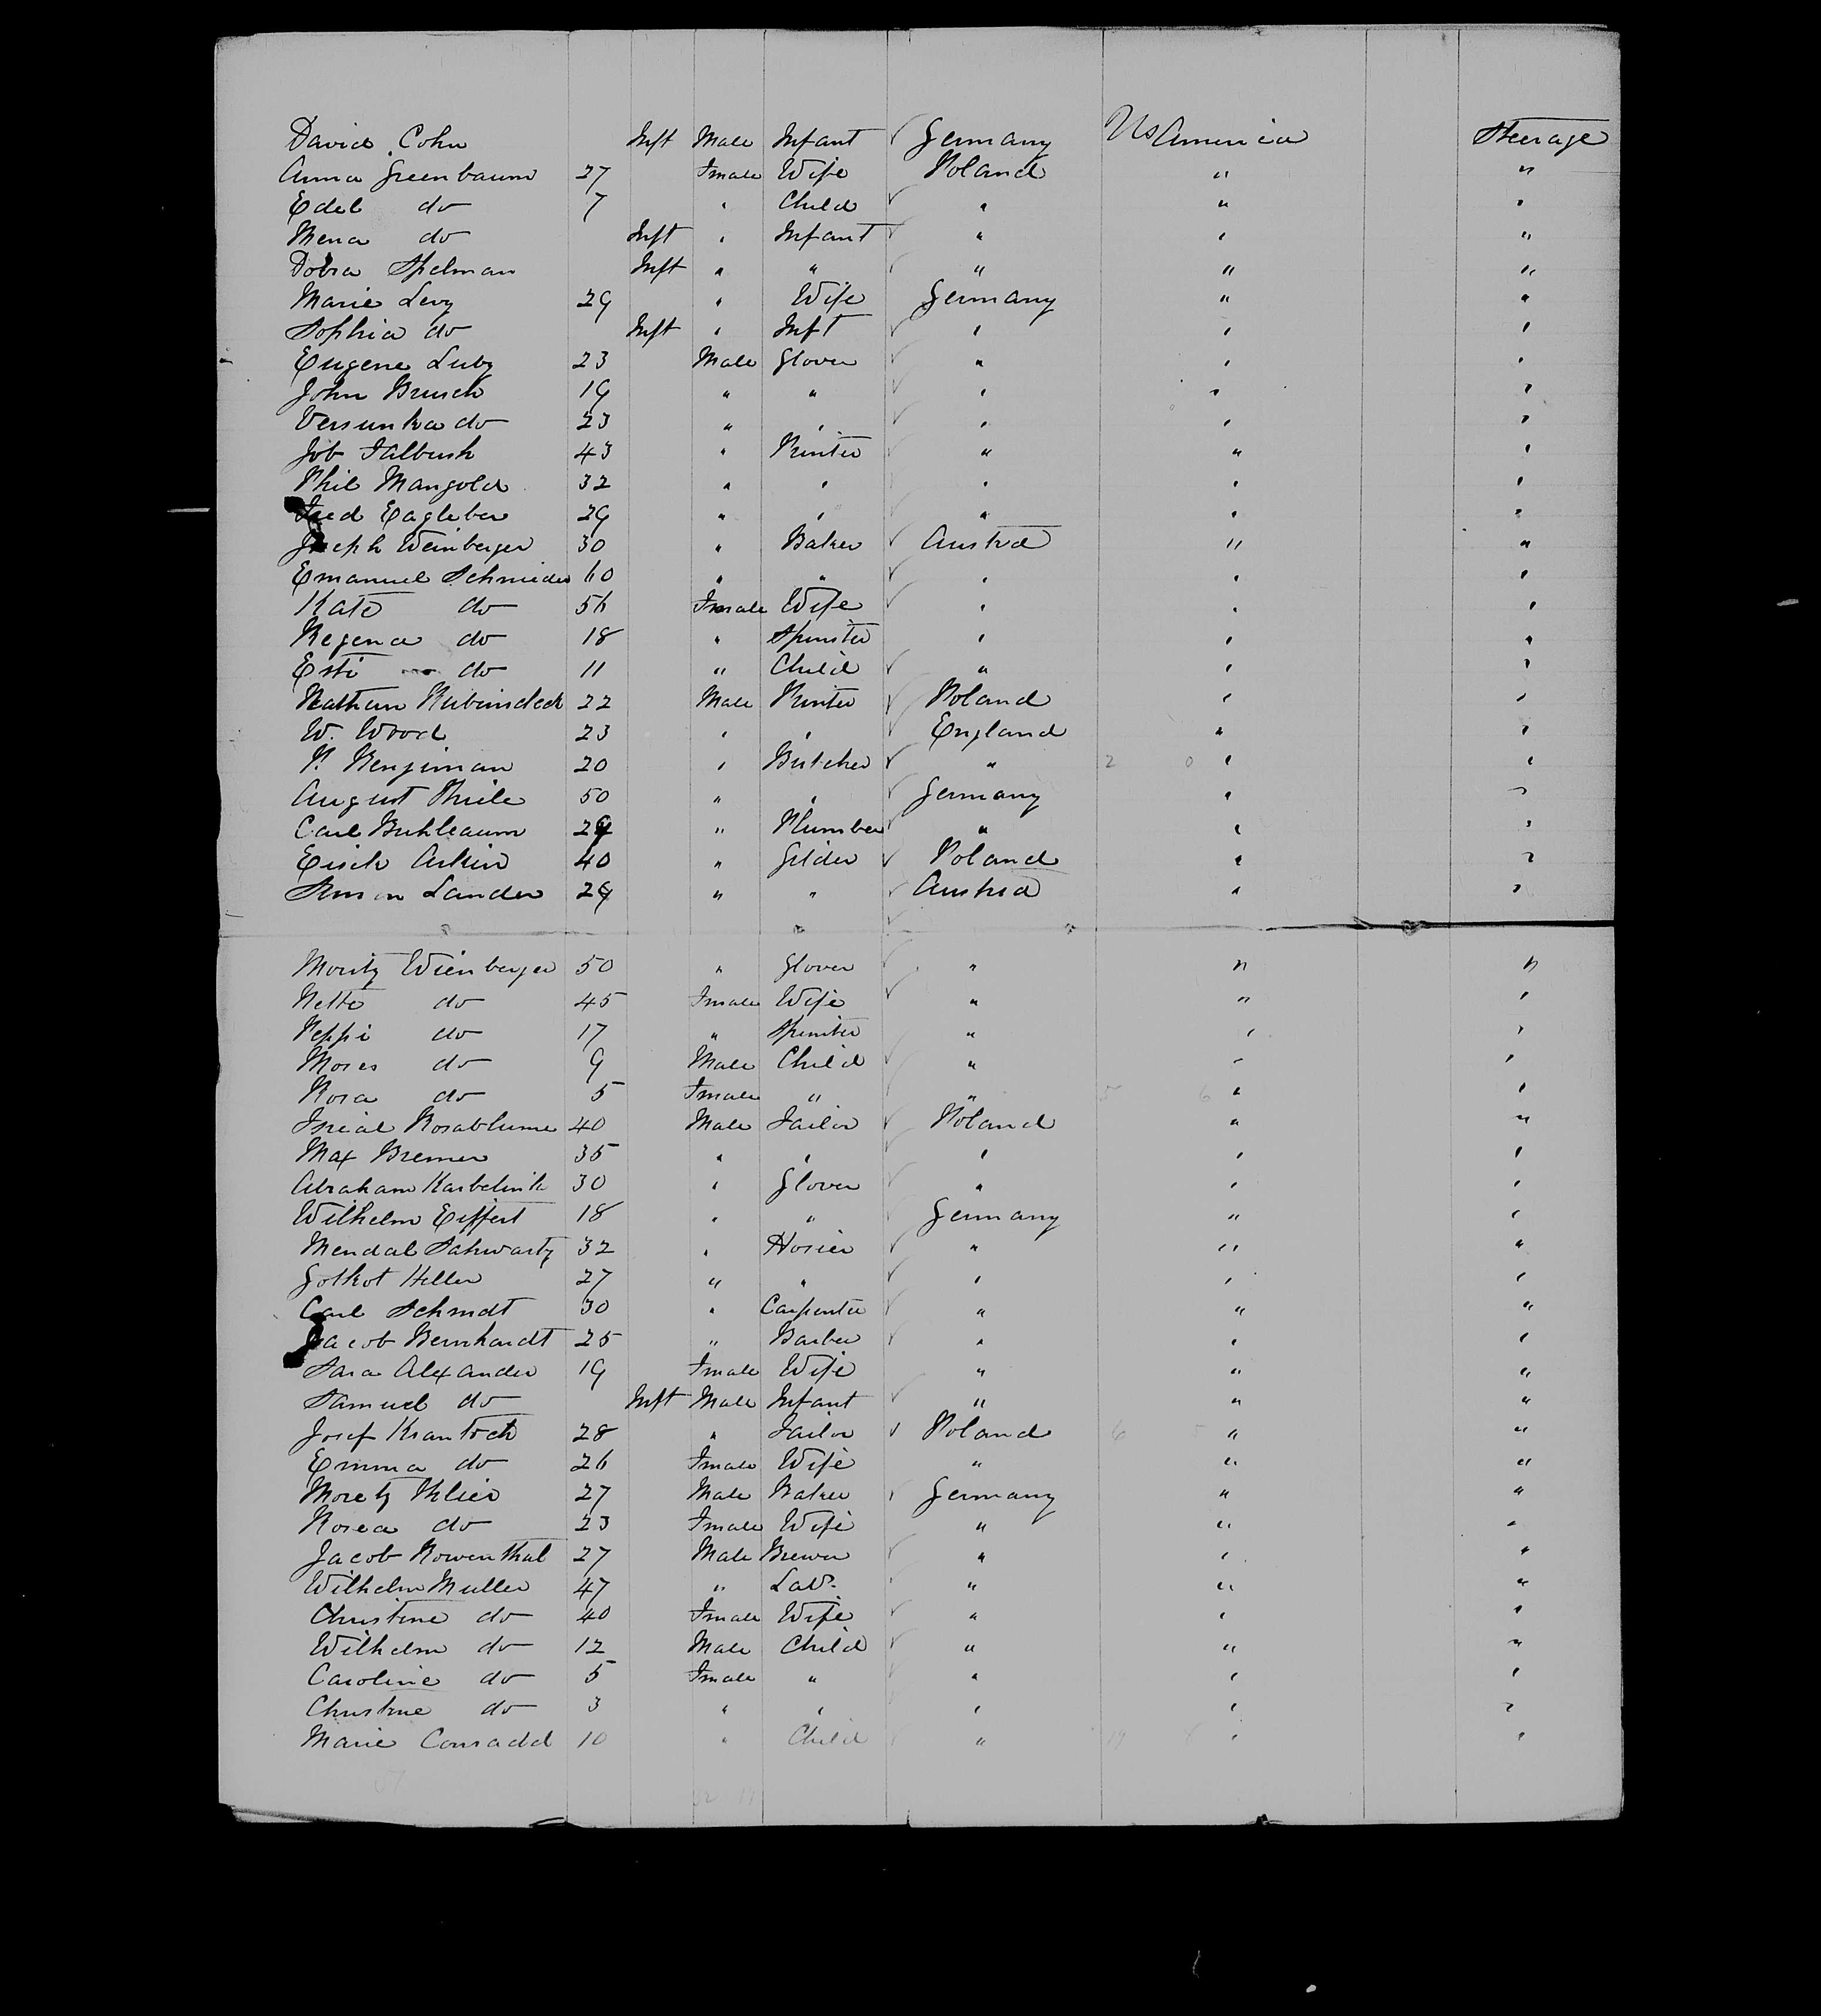 David Cohn Inft Male Infant ✓ Germany US America Steerage
Anna Greenbaum 27 Fmale Wife Poland " "
Edel do 7 " Child ✓ " " "
Mena do Inft " Infant ✓ " " "
Dobra Spelman Inft " " ✓ " " "
Marie Levy 29 " Wife Germany " "
Sophia do Inft " Inft ✓ " " "
Eugene Luby 23 Male Glover ✓ " " "
John Brusch 19 " " ✓ " " "
do 23 " " ✓ " " "
Job 43 " Printer ✓ " " "
Phil Mangold 32 " " " " "
Fred Eagleber 29 " " ✓ " " "
Joseph Weinberger 30 " Baker ✓ Austria " "
Emanuel Schmieder 60 " " ✓ " " "
Kate do 56 Fmale Wife ✓ " " "
Regena do 18 " Spinster " " "
Esti do 11 " Child ✓ " " "
Nathan 22 Male Printer ✓ Poland " "
W. Wood 23 " " ✓ England " "
P. Benjiman 20 " Butcher ✓ " 2 0 " "
August Thiele 50 " " ✓ Germany " "
Carl 29 " Plumber ✓ " " "
Eisik Arkin 40 " Gilder ✓ Poland " "
Simon Lander 29 " " ✓ Austria " "
Moritz Wienberger 50 " Glover ✓ " " "
Nette do 45 Fmale Wife ✓ " " "
Peppi do 17 " Spinster " " "
Moses do 9 Male Child ✓ " " "
Rosa do 5 Fmale " " 5 6 " "
Isreal Rosablume 40 Male Tailor ✓ Poland " "
Max Bremer 35 " " ✓ " " "
Abraham Karbelnik 30 " Glover ✓ " " "
Wilhelm Eiffert 18 " " Germany " "
Mendal Schwartz 32 " Hosier ✓ " " "
Heller 27 " " ✓ " " "
Carl Schmidt 30 " Carpenter ✓ " " "
Jacob Bernhardt 25 " Barber ✓ " " "
Sara Alexander 19 Fmale Wife " " "
Samuel do Inft Male Infant ✓ " " "
Josef 28 " Tailor ✓ Poland 6 5 " "
Emma do 26 Fmale Wife " " "
Moretz Klier 27 Male Baker ✓ Germany " "
Rosea do 23 Fmale Wife " " "
Jacob Rowenthal 27 Male Brewer ✓ " " "
Wilhelm Muller 47 " Labr. " " "
Christine do 40 Fmale Wife ✓ " " "
Wilhelm do 12 Male Child ✓ " " "
Caroline do 5 Fmale " ✓ " " "
Christine do 3 " " ✓ " " "
Marie Conradd 10 " Child " 19 8 " "
51